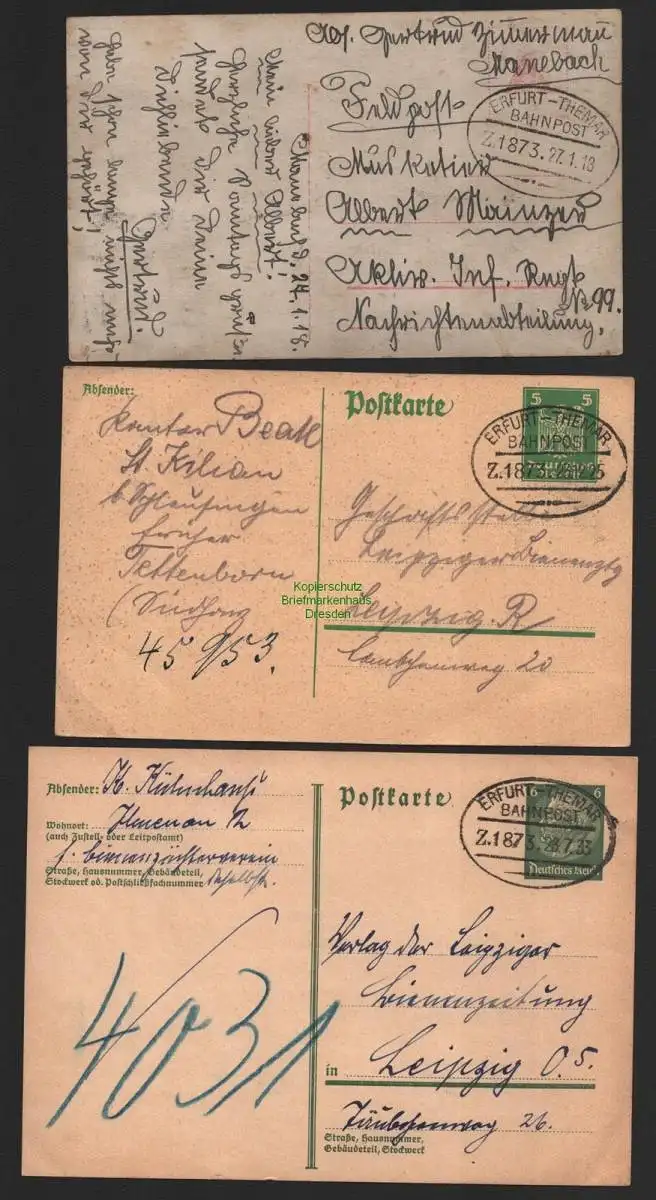 Abs. Gertrud Zimmermann
Manebach
Feldpost
ERFURT-THEMAR
BAHNPOST
Z.1873. 27.1.18
Musketier
Albert Mainzer
Aktiv. Inf. Regt
No 99.
Nachrichtenabteilung.
Manebach d. 24.1.18.
Mein lieber Albert!
Herzliche
sendet Dir Deine
Dichliebende
Gertrud.
Habe schon länger nichts mehr
von Dir gehört!
Absender:
Postkarte
5 5
ERFURT-THEMAR
BAHNPOST
Z.1873. 28.12.25
Kantor
St. Kilian
b. Schleusingen
früher
Tettenborn
(Südharz
45953.
Geschäftsstelle
Leipziger Bienenztg
Leipzig. R
Täubchenweg 20
Kopierschutz
Briefmarkenhaus
Dresden
Absender: K.
Wohnort: Ilmenau Th
(auch Zustell- oder Leitpostamt)
f. Bienenzüchterverein
Straße, Hausnummer, Gebäudeteil,
Stockwerk od. Postschließfachnummer daselbst.
Postkarte
6 6
Deutsches Reich
ERFURT-THEMAR
BAHNPOST
Z.1873. 24.7.33
4031
Verlag der Leipziger
Bienenzeitung
in Leipzig O.5.
Täubchenweg 26.
Straße, Hausnummer,
Gebäudeteil, Stockwerk